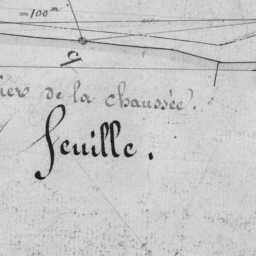 =100m
de la chaussée.
Feuille.